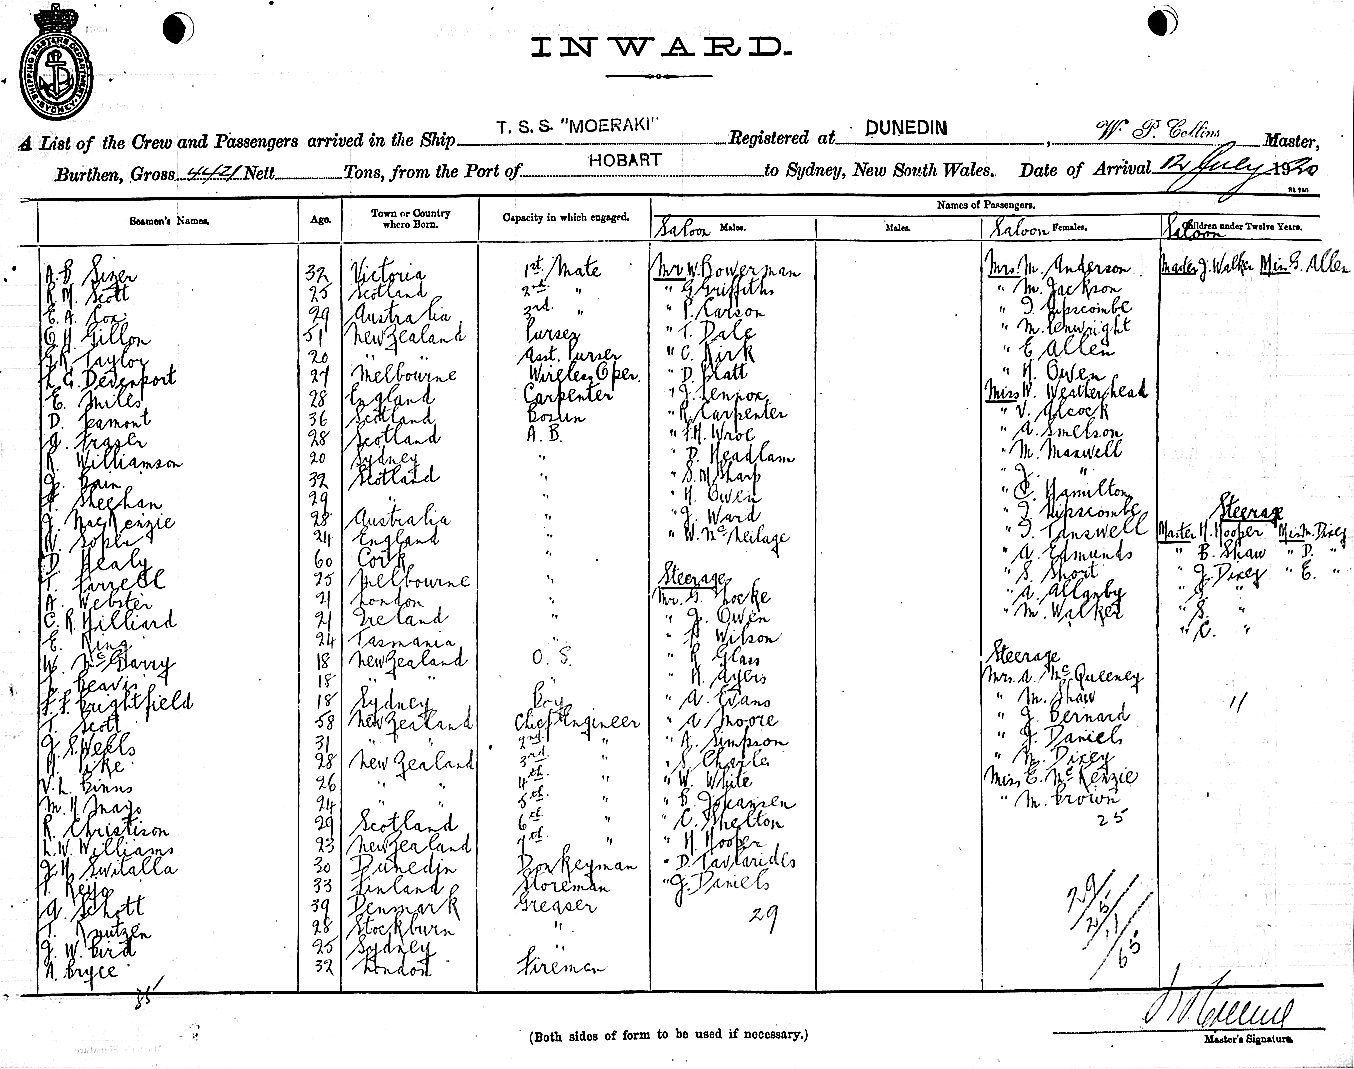 SHIPPING MASTERS DEPARTMENT SYDNEY
INWARD.
A List of the Crew and Passengers arrived in the Ship T. S. S. "MOERAKI" Registered at DUNEDIN, W. P. Collins Master,
Burthen, Gross 4421 Nett Tons, from the Port of HOBART to Sydney, New South Wales. Date of Arrival 12 July 1920
Names of Passengers.
Seamen's Names. Age. Town or Country where Born. Capacity in which engaged. Saloon Males. Males. Saloon Females. Saloon Children under Twelve Years.
A. B. Sizer 32 Victoria 1st Mate
R. M. Scott 25 Scotland 2nd "
E. A. Cox 29 Australia 3rd "
Gillon 51 New Zealand Purser
Taylor 20 " " Asst. Purser
L. G. Devenport 27 Melbourne Wireless Oper.
E. Miles 28 England Carpenter
D. Leamont 36 Scotland Bosun
J. Fraser 28 Scotland A. B.
R. Williamson 20 Sydney "
J. Bain 32 Scotland "
Sheehan 29 " "
J. MacKenzie 28 Australia "
Soper 24 England "
D. Healy 60 Cork "
T. Farrell 25 Melbourne "
A. Webster 21 London "
C. R. Hilliard 21 Ireland "
E. King 24 Tasmania "
W. McGarry 18 New Zealand O. S.
Beavis 18 " " "
Brightfield 18 Sydney Boy
T. Scott 58 New Zealand Chief Engineer
J. S. Wells 31 " " 2nd "
H. Pike 28 New Zealand 3rd "
V. L. Binns 26 " " 4th "
M. H. Mays 24 " " 5th "
R. Christison 29 Scotland 6th "
L. W. Williams 23 New Zealand 7th "
J. H. Switalla 30 Dunedin Donkeyman
33 Finland Storeman
Schott 39 Denmark Greaser
Knutzen 28 Stockburn "
J. W. Bird 25 Sydney "
A. Bryce 32 London Fireman
85
Mr W. Bowerman
" G. Griffiths
" P. Carson
" T. Dale
" C. Kirk
" D. Platt
" J. Lennox
" R. Carpenter
" F. H. Wroe
" D. Headlam
" S. M. Sharp
" H. Owen
" J. Ward
" W. McNeilage
Steerage
Mr. G. Locke
" J. Owen
" Wilson
" R. Glass
" H. Ayers
" A. Evans
" A. Moore
" A. Simpson
" S. Charles
" W. White
" B. Johansen
" C. Shelton
" H. Hooper
" D. Tavlarides
" J. Daniels
29
Mrs. M. Anderson
" M. Jackson
" I. Lipscombe
" M. Penwright
" E. Allen
" H. Owen
Miss W. Weatherhead
" V. Alcock
" A. Smelson
" M. Maxwell
" J. "
" C. Hamilton
" I. Lipscombe
" I. Tanswell
" A. Edmunds
" S. Short
" A. Allanby
" M. Walker
Steerage
Mrs. A. McQueeney
" M. Shaw
" J. Bernard
" J. Daniels
" M. Dixey
Miss E. McKenzie
" M. Brown
25
29/
25/
11/
/65
Master J. Walker Miss G. Allen
Steerage
Master H. Hooper Miss M. Dixey
" B. Shaw " D. "
" J. Dixey " E. "
" S. "
" C. "
11
(Both sides of form to be used if necessary.)
Master's Signature.